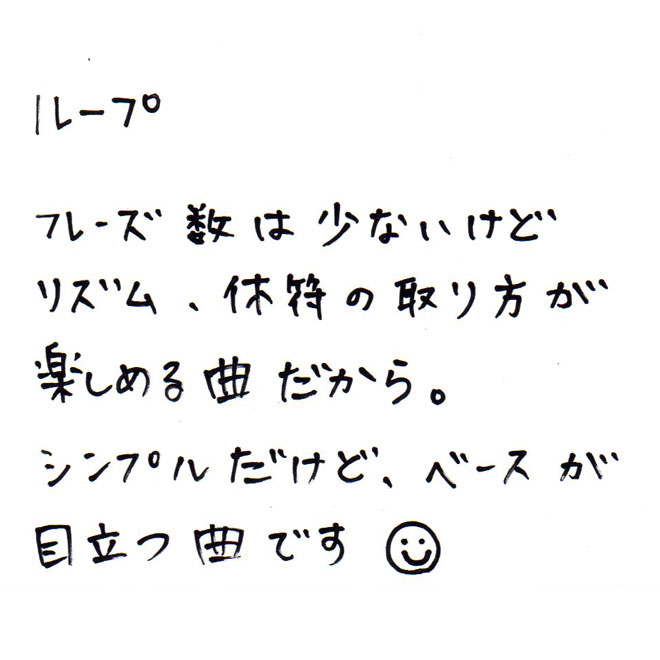 ループ
フレーズ数は少ないけど
リズム、休符の取り方が
楽しめる曲だから。
シンプルだけど、ベースが
目立つ曲です